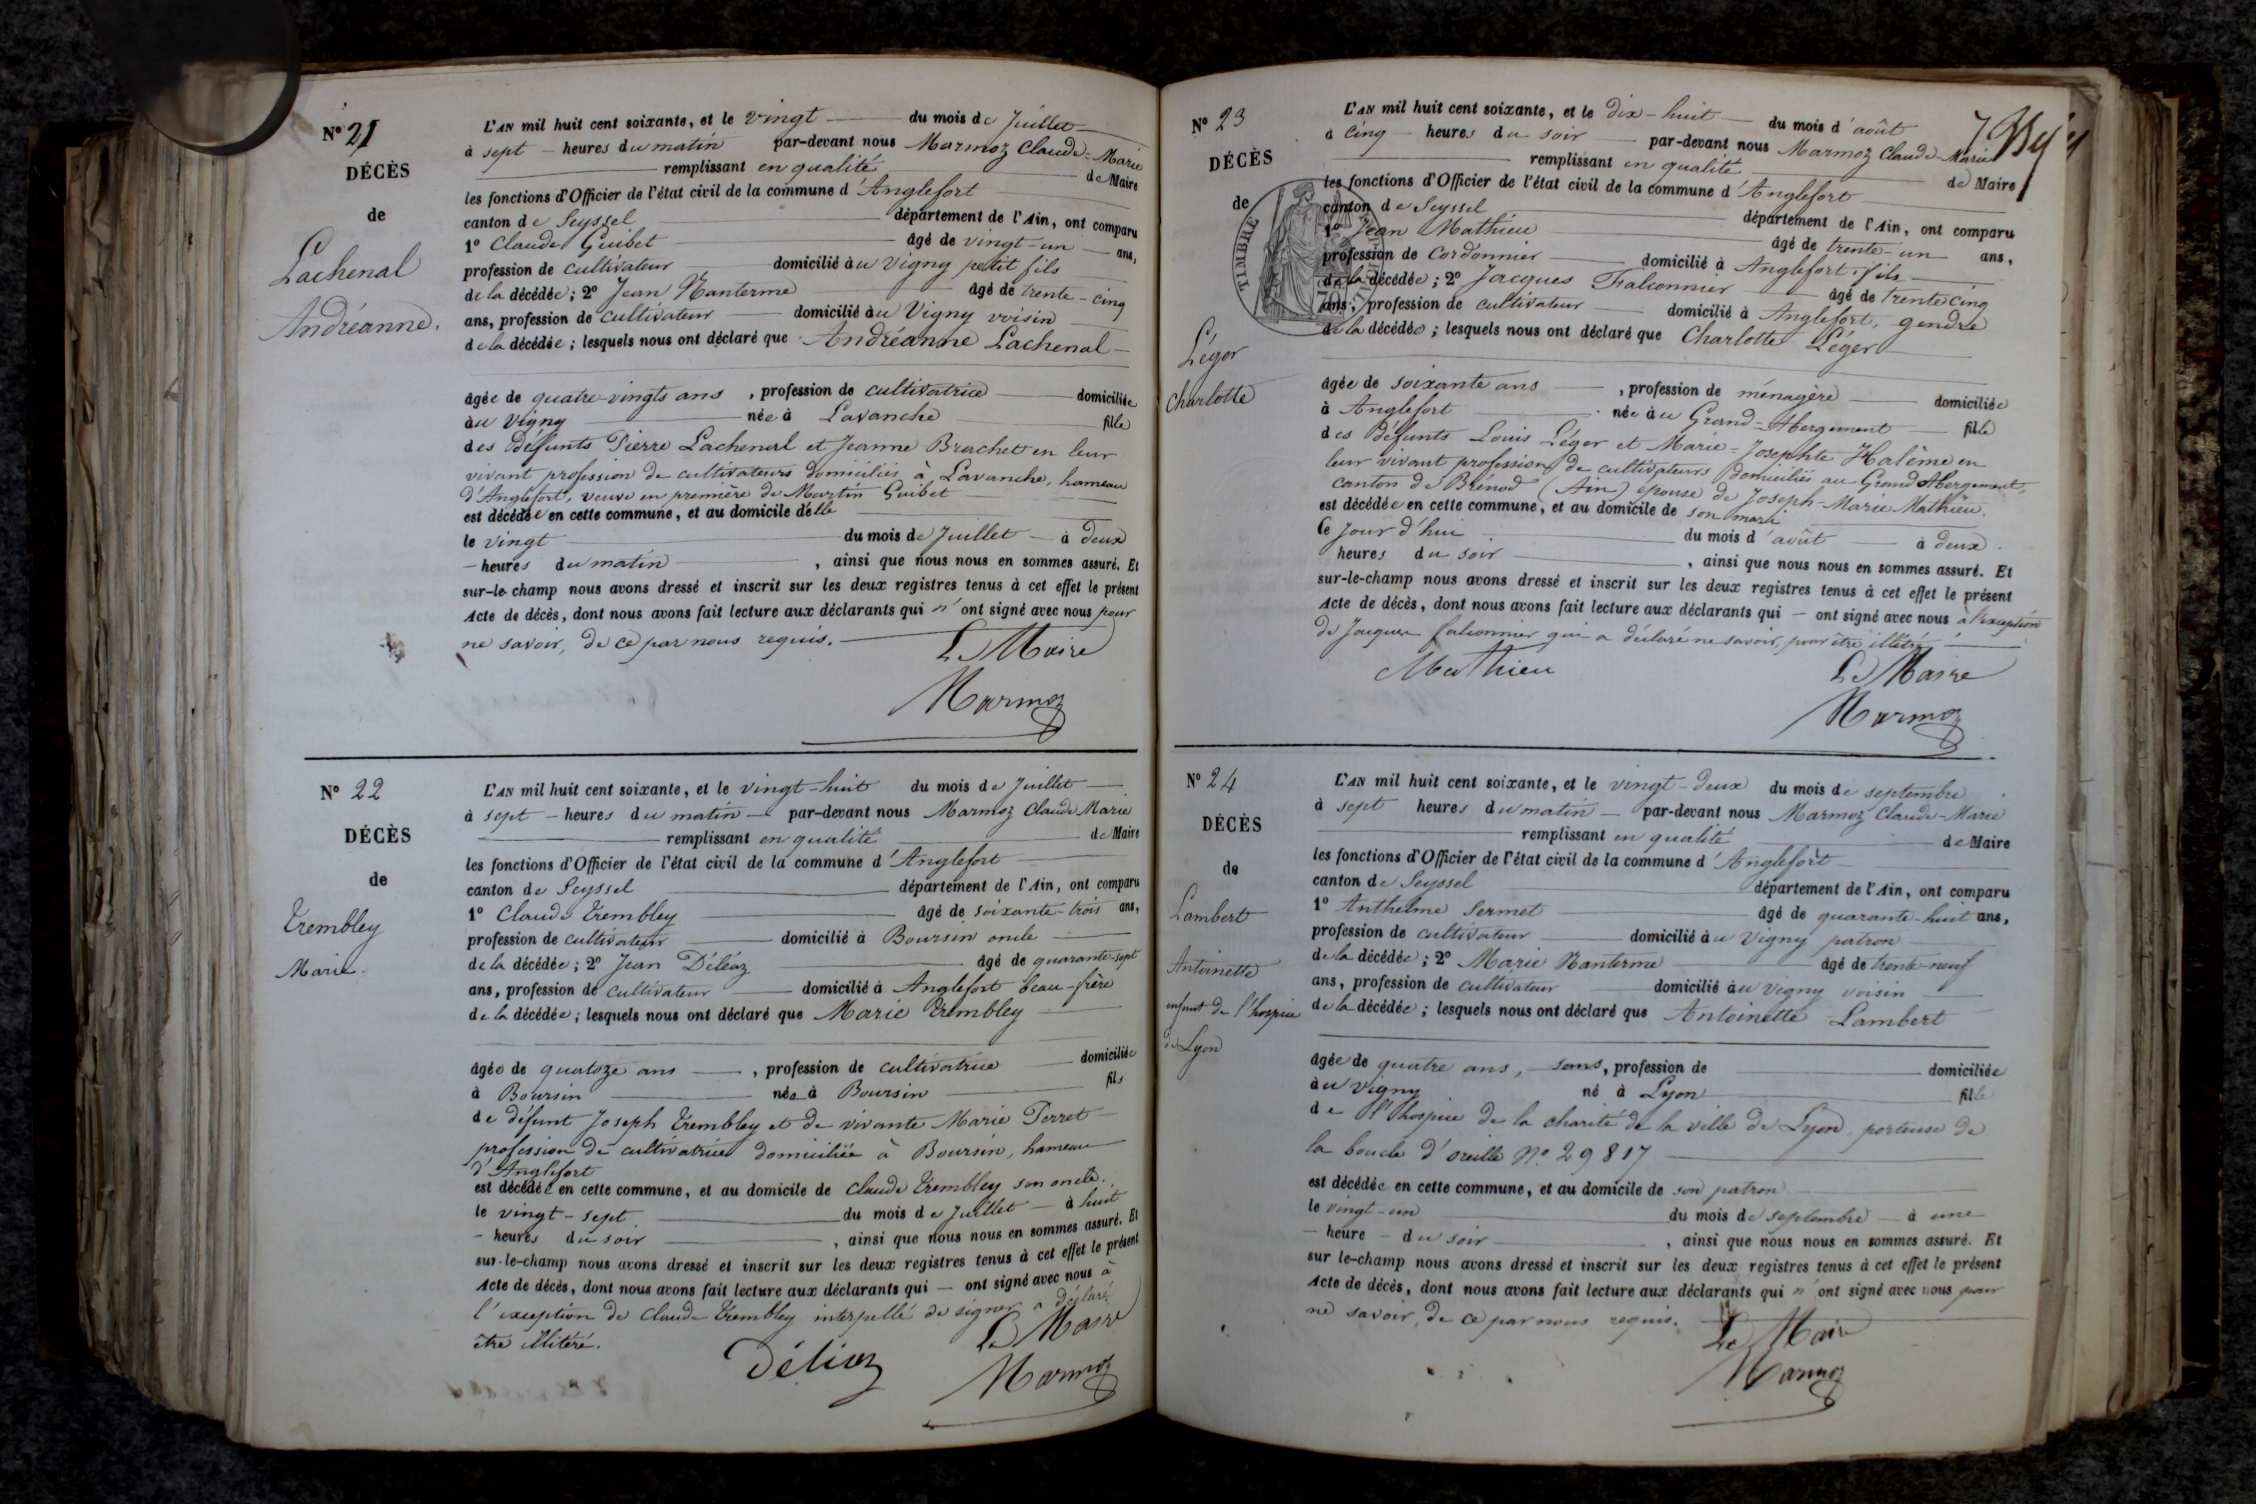 N° 21
DÉCÈS
de
Lachenal
Andréanne.
L'AN mil huit cent soixante, et le vingt du mois de Juillet
à sept heures du matin par-devant nous Marmoz Claude-Marie
remplissant en qualité de Maire
les fonctions d'Officier de l'état civil de la commune d'Anglefort
canton de Seyssel département de l'Ain, ont comparu
1° Claude Guibet âgé de vingt-un ans,
profession de cultivateur domicilié au Vigny petit fils
de la décédée; 2° Jean Nanterme âgé de trente-cinq
ans, profession de cultivateur domicilié au Vigny voisin
de la décédée; lesquels nous ont déclaré que Andréanne Lachenal
âgée de quatre-vingts ans, profession de cultivatrice domiciliée
au Vigny née à Lavanche fille
des défunts Pierre Lachenal et Jeanne Brachet en leur
vivant profession de cultivateurs domiciliés à Lavanche, hameau
d'Anglefort, veuve en première de Martin Guibet
est décédée en cette commune, et au domicile d'elle
le vingt du mois de Juillet à deux
heures du matin, ainsi que nous nous en sommes assuré. Et
sur-le-champ nous avons dressé et inscrit sur les deux registres tenus à cet effet le présent
Acte de décès, dont nous avons fait lecture aux déclarants qui n'ont signé avec nous pour
ne savoir, de ce par nous requis.
Le Maire
Marmoz
N° 22
DÉCÈS
de
Trembley
Marie.
L'AN mil huit cent soixante, et le vingt-huit du mois de Juillet
à sept heures du matin par-devant nous Marmoz Claude Marie
remplissant en qualité de Maire
les fonctions d'Officier de l'état civil de la commune d'Anglefort
canton de Seyssel département de l'Ain, ont comparu
1° Claude Trembley âgé de soixante-trois ans,
profession de cultivateur domicilié à Boursin oncle
de la décédée; 2° Jean Déléaz âgé de quarante-sept
ans, profession de cultivateur domicilié à Anglefort beau-frère
de la décédée; lesquels nous ont déclaré que Marie Trembley
âgée de quatoze ans, profession de cultivatrice domiciliée
à Boursin née à Boursin fils
de défunt Joseph Trembley et de vivante Marie Perret
profession de cultivatrice domiciliée à Boursin, hameau
d'Anglefort
est décédée en cette commune, et au domicile de Claude Trembley son oncle.
le vingt-sept du mois de Juillet à huit
heures du soir, ainsi que nous nous en sommes assuré. Et
sur-le-champ nous avons dressé et inscrit sur les deux registres tenus à cet effet le présent
Acte de décès, dont nous avons fait lecture aux déclarants qui ont signé avec nous à
l'exception de Claude Trembley interpellé de signer a déclaré
être illitéré.
Le Maire
Déléaz
Marmoz
N° 23
DÉCÈS
de
Léger
Charlotte
TIMBRE
L'AN mil huit cent soixante, et le dix-huit du mois d'août
à cinq heures du soir par-devant nous Marmoz Claude-Marie
remplissant en qualité de Maire
les fonctions d'Officier de l'état civil de la commune d'Anglefort
canton de Seyssel département de l'Ain, ont comparu
1° Jean Mathieu âgé de trente-un ans,
profession de Cordonnier domicilié à Anglefort, fils
de la décédée; 2° Jacques Falconnier âgé de trente cinq
ans, profession de cultivateur domicilié à Anglefort, gendre
de la décédée; lesquels nous ont déclaré que Charlotte Léger
âgée de soixante ans, profession de ménagère domiciliée
à Anglefort née au Grand-Abergement fille
des défunts Louis Léger et Marie-Josephte Halême en
leur vivant profession de cultivateurs domiciliés au Grand Abergement,
canton de Brénod (Ain) épouse de Joseph-Marie Mathieu.
est décédée en cette commune, et au domicile de son mari
Ce Jour d'hui du mois d'août à deux
heures du soir, ainsi que nous nous en sommes assuré. Et
sur-le-champ nous avons dressé et inscrit sur les deux registres tenus à cet effet le présent
Acte de décès, dont nous avons fait lecture aux déclarants qui ont signé avec nous à l'exception
de Jacques Falconnier qui a déclaré ne savoir, pour être illétré
Mathieu
Le Maire
Marmoz
N° 24
DÉCÈS
de
Lambert
Antoinette
enfant de l'hospice
de Lyon
L'AN mil huit cent soixante, et le vingt-deux du mois de septembre
à sept heures du matin par-devant nous Marmoz Claude-Marie
remplissant en qualité de Maire
les fonctions d'Officier de l'état civil de la commune d'Anglefort
canton de Seyssel département de l'Ain, ont comparu
1° Anthelme Sermet âgé de quarante-huit ans,
profession de cultivateur domicilié au Vigny patron
de la décédée; 2° Marie Nanterme âgé de trente-neuf
ans, profession de cultivateur domicilié au Vigny voisin
de la décédée; lesquels nous ont déclaré que Antoinette Lambert
âgée de quatre ans, sans, profession de domiciliée
au Vigny né à Lyon fille
de l'hospice de la charité de la ville de Lyon, porteuse de
la boucle d'oreille N° 29817
est décédée en cette commune, et au domicile de son patron
le vingt-un du mois de septembre à une
heure du soir, ainsi que nous nous en sommes assuré. Et
sur le-champ nous avons dressé et inscrit sur les deux registres tenus à cet effet le présent
Acte de décès, dont nous avons fait lecture aux déclarants qui n'ont signé avec nous pour
ne savoir, de ce par nous requis.
Le Maire
Marmoz